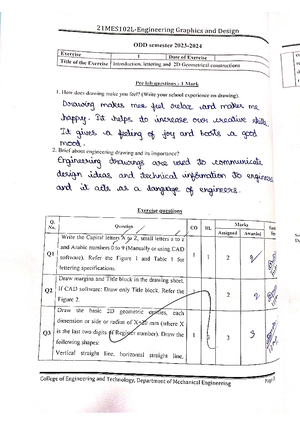 21MES102L-Engineering Graphics and Design
ODD semester 2023-2024
Exercise 1 Date of Exercise
Title of the Exercise Introduction, lettering and 2D Geometrical constructions
Pre lab questions - 1 Mark
1. How does drawing make you feel? (Write your school experience on drawing).
Drawing makes me ful relax and makes me
happy. It helps to increase our creative skills.
It gives a feeling of joy and boosts a good
mood.
2. Brief about engineering drawing and its importance?
Engineering drawings are used to communicate
design ideas and technical information to engineers
and it acts as a language of engineers.
Exercise questions
Q. No. Question CO BL Marks
Assigned Awarded
Q1 Write the Capital letters A to Z, small letters a to z
and Arabic numbers 0 to 9 (Manually or using CAD
software). Refer the Figure 1 and Table 1 for
lettering specifications. 1 1 2 2
Q2 Draw margins and Title block in the drawing sheet.
If CAD software: Draw only Title block. Refer the
Figure 2. 2 2
Q3 Draw the basic 2D geometric entities, each
dimension or side or radius of X+25 mm (where X
is the last two digits of Register number). Draw the
following shapes: 1 3 3
Vertical straight line, horizontal straight line,
College of Engineering and Technology, Department of Mechanical Engineering